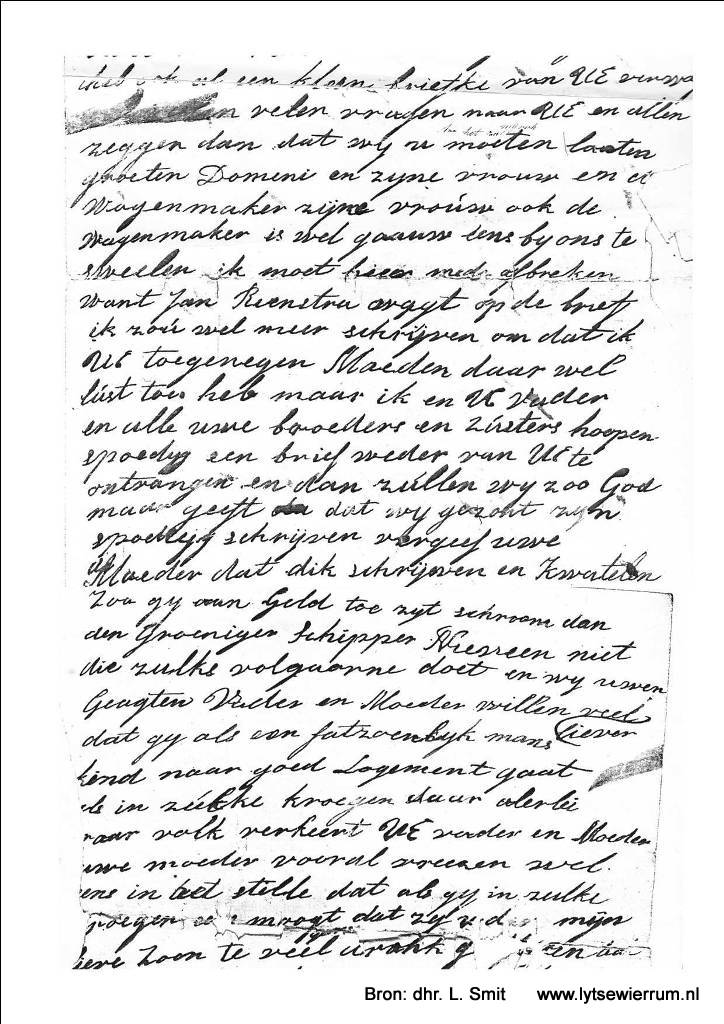 ook al een klein briefke van UE verwa
velen vragen naar UE en allen
zeggen dan dat wy u moeten laaten
groeten Domeni en zyne vrouw en d
Wagenmaker zijne vrouw ook de
wagenmaker is wel gaauw eens by ons te
ik moet hier mede afbreken
want Jan Rienstra wagt op de brief
ik zoú wel meer schrijven om dat ik
UE toegenegen Moeden daar wel
lúst toe heb maar ik en UE Vader
en alle uwe broeders en Zústers hoopen
spoedig een brief weder van UE te
ontvangen en dan zúllen wy zoo God
maar geeft dat wy gezont zyn
spoedig schrijven vergeef uwe
Moeder dat dik schrijven en Kwatelen
Zoo gy aan Geld toe zyt schroom dan
den Groeniger Schipper niet
die zulks volgaarne doet en wy uwen
Geagten Vader en Moeder willen veel
liever
dat gy als een fatzoenlyk mans
kend naar goed Logement gaat
als in zúlke kroegen daar alerlei
raar volk verkeert UE vader en Moeder
uwe moeder vooral vreezen wel
eens in het stille dat als gy in zulke
kroegen moogt dat zy u mijn
lieve Zoon te veel drank
Bron: dhr. L. Smit www.lytsewierrum.nl